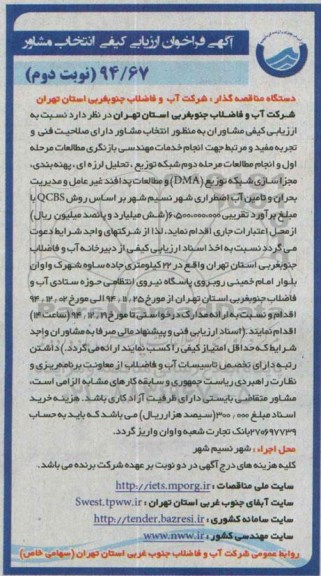 آگهی فراخوان ارزیابی کیفی انتخاب مشاور
۹۴/۶۷ (نوبت دوم)
دستگاه مناقصه گذار : شرکت آب و فاضلاب جنوبغربی استان تهران
شرکت آب و فاضلاب جنوبغربی استان تهران در نظر دارد نسبت به
ارزیابی کیفی مشاوران به منظور انتخاب مشاور دارای صلاحیت فنی و
تجربه مفید و مرتبط جهت انجام خدمات مهندسی بازنگری مطالعات مرحله
اول و انجام مطالعات مرحله دوم شبکه توزیع ، تحلیل لرزه ای ، پهنه بندی،
مجزا سازی شبکه توزیع (DMA) و مطالعات پدافند غیر عامل و مدیریت
بحران و تامین آب اضطراری شهر نسیم شهر بر اساس روش QCBS با
مبلغ برآورد تقریبی ۶.۵۰۰.۰۰۰.۰۰۰(شش میلیارد و پانصد میلیون ریال)
از محل اعتبارات جاری اقدام نماید، لذا از شرکتهای واجد شرایط دعوت
می گردد نسبت به اخذ اسناد ارزیابی کیفی از دبیرخانه آب و فاضلاب
جنوبغربی استان تهران واقع در ۲۳ کیلومتری جاده ساوه شهرک واوان
بلوار امام خمینی روبروی پاسگاه نیروی انتظامی حوزه ستادی آب و
فاضلاب جنوبغربی استان تهران از مورخ ۲۵ . ۱۱ . ۹۴ الی مورخ ۰۲ . ۱۲ . ۹۴
اقدام و نسبت به ارائه مدارک درخواستی تا مورخ ۱۹ . ۱۲ . ۹۴ (ساعت ۱۴)
اقدام نمایند.(اسناد ارزیابی فنی و پیشنهاد مالی صرفا به مشاوران واجد
شرایط که حداقل امتیاز کیفی را کسب نمایند ارائه می گردد.) داشتن
رتبه دارای تخصص تاسیسات آب و فاضلاب از معاونت برنامه ریزی و
نظارت راهبردی ریاست جمهوری و سابقه کارهای مشابه الزامی است،
مشاور متقاضی بایستی دارای ظرفیت آزاد کاری باشد. هزینه خرید
اسناد مبلغ ۳۰۰.۰۰۰(سیصد هزار ریال) می باشد که باید به حساب
۲۷۰۶۹۷۷۳۹ بانک تجارت شعبه واوان واریز گردد.
محل اجراء : شهر نسیم شهر
کلیه هزینه های درج آگهی در دو نوبت بر عهده شرکت برنده می باشد.
سایت ملی مناقصات : http://iets.mporg.ir
سایت آبفای جنوب غربی استان تهران : Swest.tpww.ir
سایت سامانه کشوری : http://tender.bazresi.ir
سایت مهندسی کشور : www.nww.ir
روابط عمومی شرکت آب و فاضلاب جنوب غربی استان تهران (سهامی خاص)